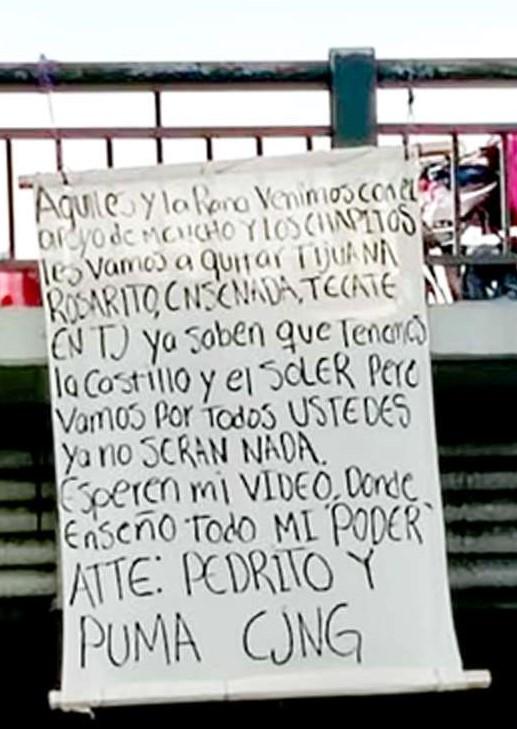 Aquiles y la Rana Venimos con el
apoyo de MENCHO Y LOS CHAPITOS
les vamos a quitar TIJUANA
ROSARITO, ENSENADA, TECATE
EN TJ ya saben que Tenemos
la Castillo y el SOLER Pero
Vamos Por Todos USTEDES
ya no SERAN NADA.
Esperen mi VIDEO. Donde
Enseño Todo MI "PODER"
ATTE: PEDRITO Y
PUMA CJNG